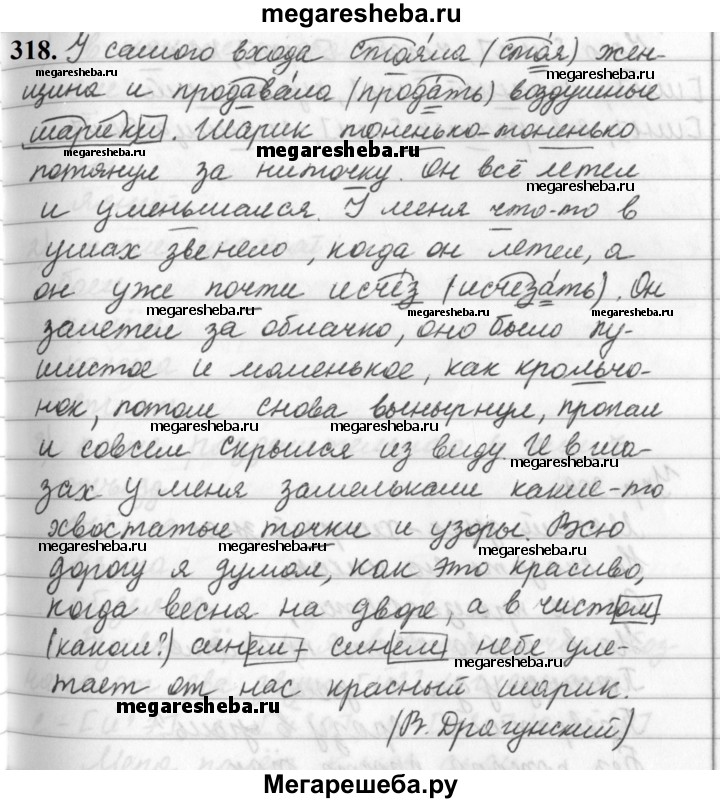 megaresheba.ru
318. У самого входа стояла (стоя) жен-
megaresheba.ru megaresheba.ru megaresheba.ru
щина и продавала (продать) воздушные
шарики. Шарик тоненько-тоненько
megaresheba.ru
потянул за ниточку. Он всё летел
megaresheba.ru
и уменьшался. У меня что-то в
ушах звенело, когда он летел, а
он уже почти исчез (исчезать). Он
megaresheba.ru
залетел за облачко, оно было пу-
шистое и маленькое, как крольчо-
нок, потом снова вынырнул, пропал
megaresheba.ru
и совсем скрылся из виду. И в гла-
megaresheba.ru
зах у меня замелькали какие-то
хвостатые точки и узоры. Всю
megaresheba.ru megaresheba.ru megaresheba.ru
дорогу я думал, как это красиво,
когда весна на дворе, а в чистом
(каком?) синем-синем небе уле-
megaresheba.ru
тает от нас красный шарик.
megaresheba.ru
(В. Драгунский)
Мегарешеба.ру